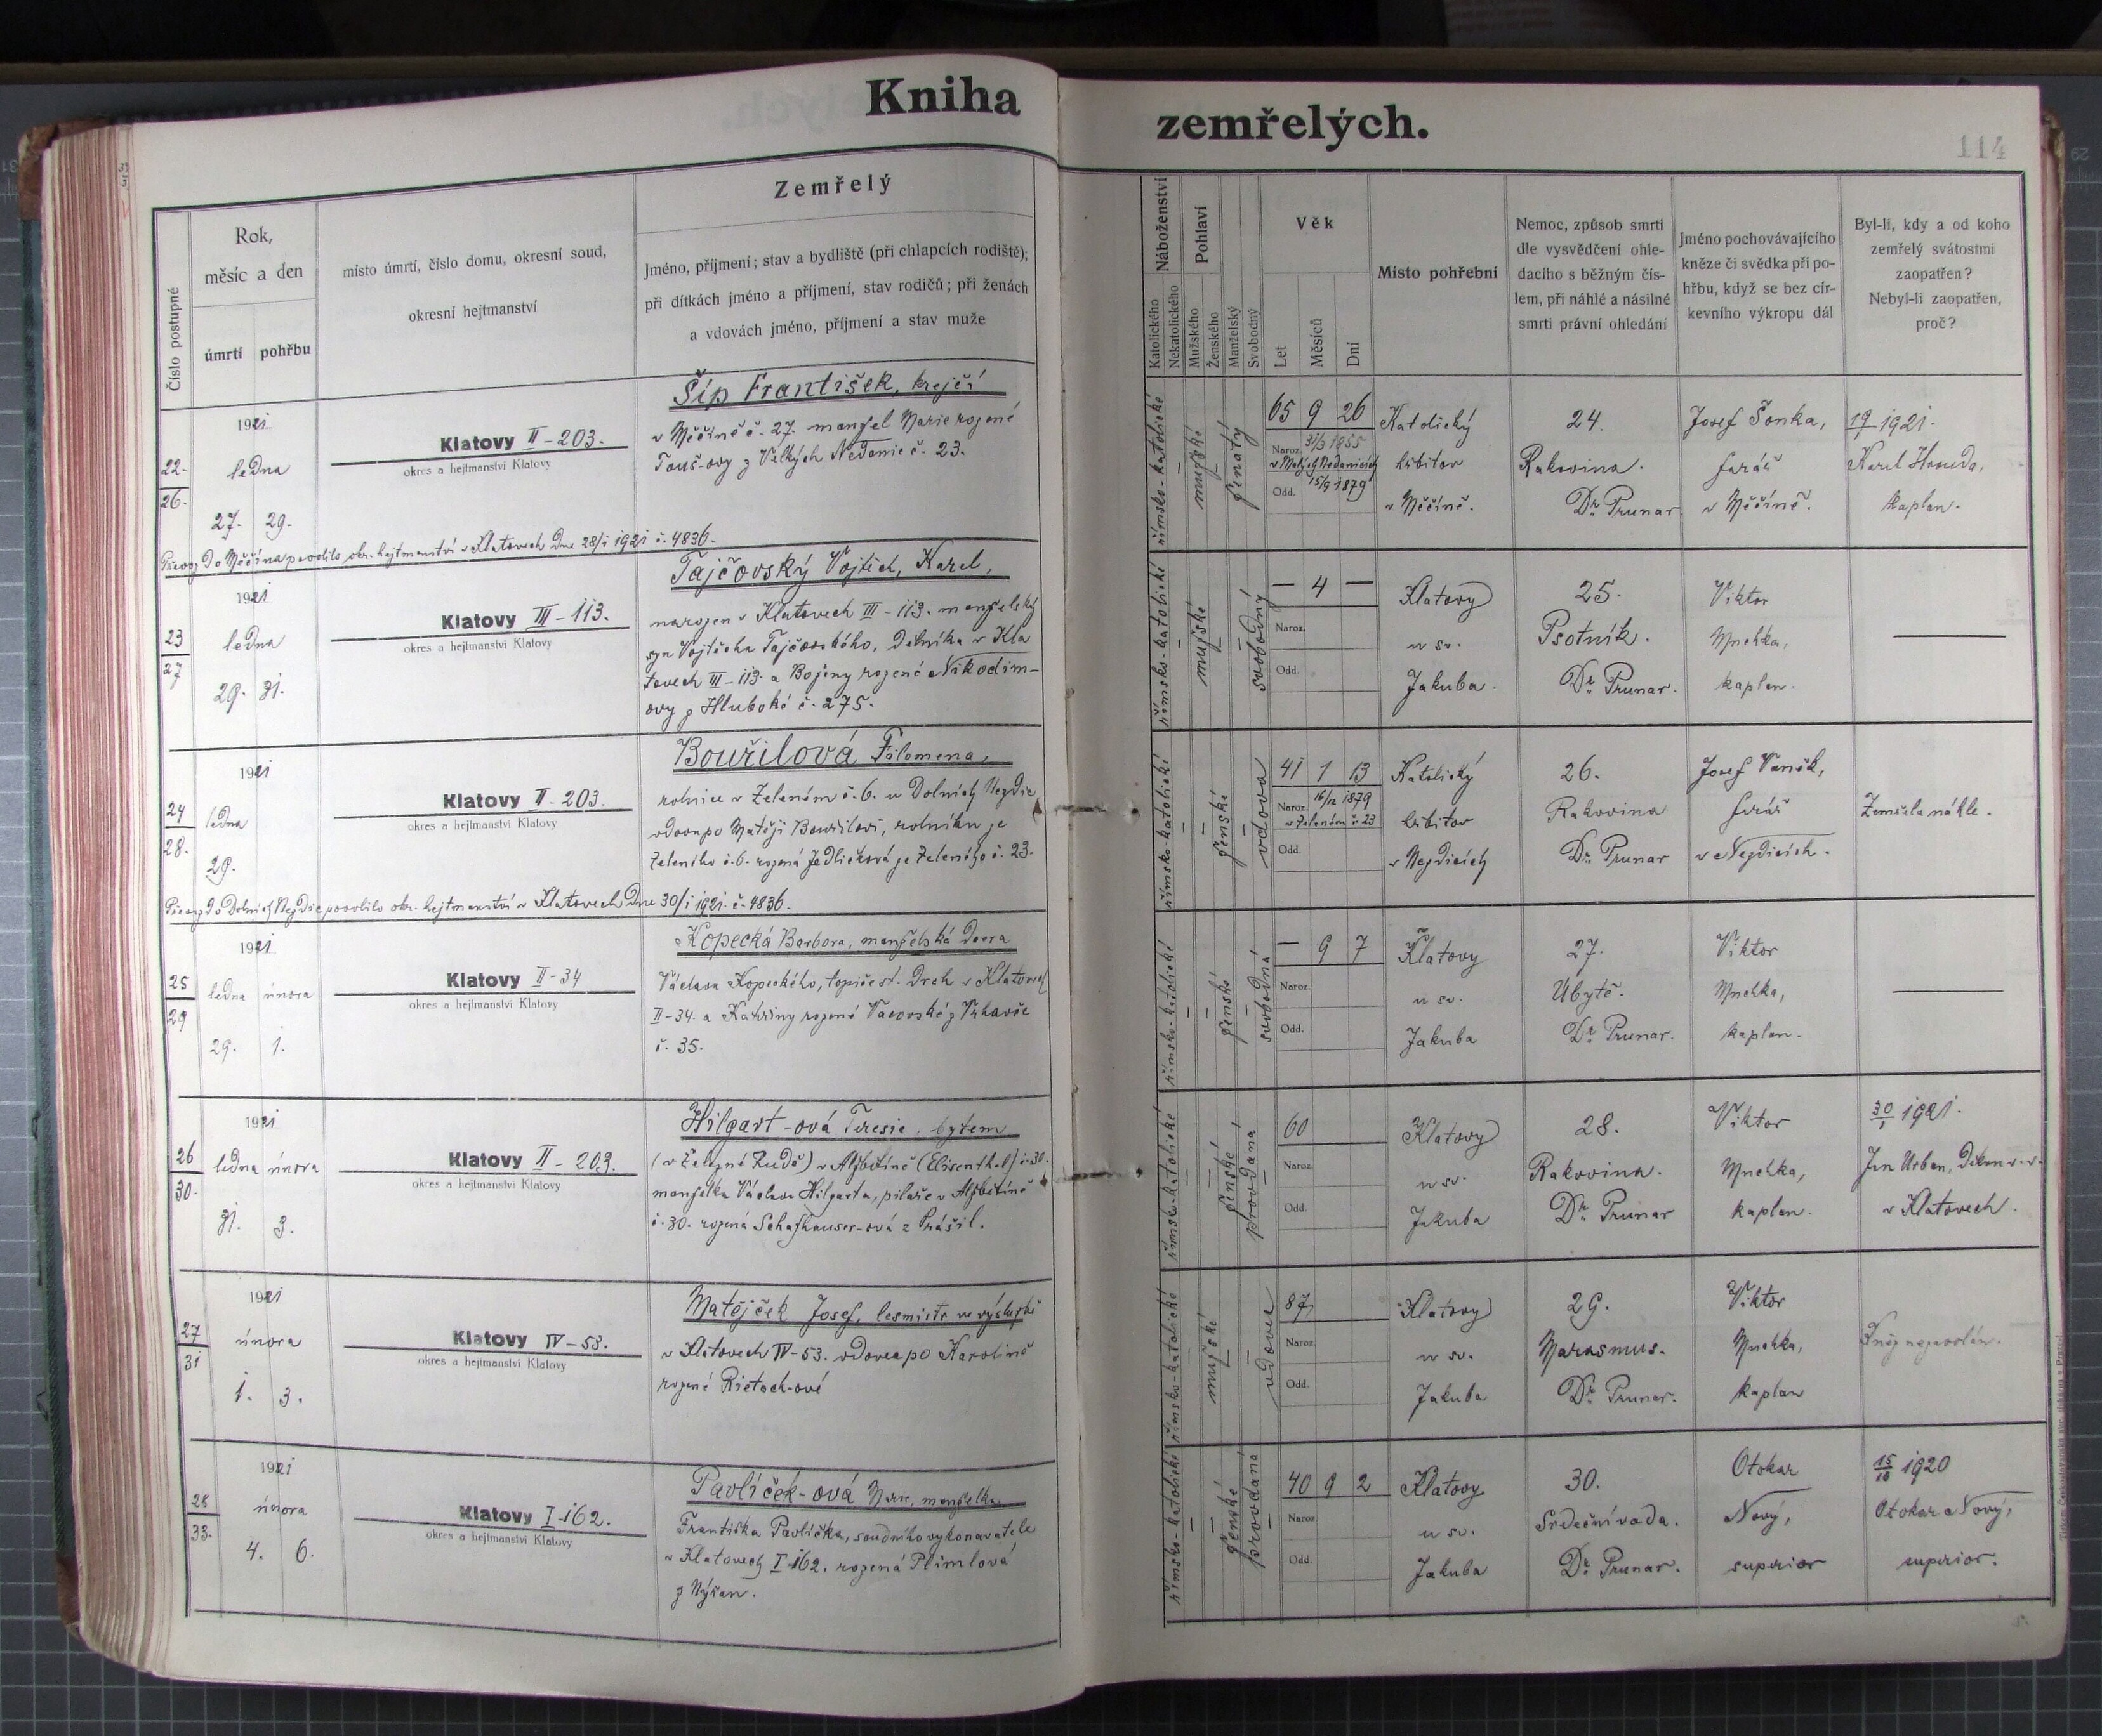 Kniha zemřelých.
114
Číslo postupné
Rok,
měsíc a den
úmrtí
pohřbu
místo úmrtí, číslo domu, okresní soud,
okresní hejtmanství
Zemřelý
Jméno, příjmení; stav a bydliště (při chlapcích rodiště);
při dítkách jméno a příjmení, stav rodičů; při ženách
a vdovách jméno, příjmení a stav muže
Náboženství
Katolického
Nekatolického
Pohlaví
Mužského
Ženského
Manželský
Svobodný
Věk
Let
Měsíců
Dní
Místo pohřební
Nemoc, způsob smrti
dle vysvědčení ohle-
dacího s běžným čís-
lem, při náhlé a násilné
smrti právní ohledání
Jméno pochovávajícího
kněze či svědka při po-
hřbu, když se bez cír-
kevního výkropu dál
Byl-li, kdy a od koho
zemřelý svátostmi
zaopatřen?
Nebyl-li zaopatřen,
proč?
22.
26.
1921
ledna
27. 29.
Klatovy II-203.
okres a hejtmanství Klatovy
Šíp František, krejčí
v Měčíně č. 27. manžel Marie rozené
Touš-ovy z Velkých Nedanic č. 23.
Převoz do Měčína povolilo okr. hejtmanství v Klatovech dne 28/1 1921 č. 4836.
římsko-katolické
mužské
ženatý
65 9 26
Naroz. 31/3 1855
v Malých Nedanicích
Odd. 15/9 1879
Katolický
hřbitov
v Měčíně.
24.
Rakovina.
Dr. Prunar.
Josef Šonka,
farář
v Měčíně.
19/1 1921.
Karel
kaplan.
23
27
1921
ledna
29. 31.
Klatovy III-113.
okres a hejtmanství Klatovy
Tajčovský Vojtěch, Karel,
narozen v Klatovech III-113. manželský
syn Vojtěcha Tajčovského, dělníka v Kla
tovech III-113. a Boženy rozené Nikodim-
ovy z Hluboké č. 275.
římsko-katolické
mužské
svobodný
— 4 —
Naroz.
Odd.
Klatovy
u sv.
Jakuba.
25.
Psotník.
Dr. Prunar.
Viktor
Muchka,
kaplan.
24
28.
1921
ledna
29.
Klatovy II-203.
okres a hejtmanství Klatovy
Bouřilová Filomena,
rolnice v Zeleném č. 6. u Dolních Nezdic
vdova po Matěji Bouřilovi, rolníku ze
Zeleného č. 6. rozená Jedličková ze Zeleného č. 23.
Převoz do Dolních Nezdic povolilo okr. hejtmanství v Klatovech dne 30/1 1921. č. 4836.
římsko-katolické
ženské
vdova
41 1 13
Naroz. 16/12 1879
v Zeleném č. 23
Odd.
Katolický
hřbitov
v Nezdicích
26.
Rakovina
Dr. Prunar
Josef Vaněk,
farář
v Nezdicích.
Zemřela náhle.
25
29
1921
ledna února
29. 1.
Klatovy II-34
okres a hejtmanství Klatovy
Kopecká Barbora, manželská dcera
Václava Kopeckého, topiče st. drah v Klatovech
II-34. a Kateřiny rozené Vacovské z Vrhavče
č. 35.
římsko-katolické
ženské
svobodná
— 9 7
Naroz.
Odd.
Klatovy
u sv.
Jakuba
27.
Úbytě.
Dr. Prunar.
Viktor
Muchka,
kaplan.
26
30.
1921
ledna února
31. 3.
Klatovy II-203.
okres a hejtmanství Klatovy
Hilgart-ová Teresie, bytem
(v Železné Rudě) v Alžbětíně (Elisenthal) č. 30.
manželka Václava Hilgarta, pilaře v Alžbětíně
č. 30. rozená Schafhauser-ová z Prášil.
římsko-katolické
ženské
provdaná
60
Naroz.
Odd.
Klatovy
u sv.
Jakuba
28.
Rakovina.
Dr. Prunar
Viktor
Muchka,
kaplan.
30/1 1921.
Jan Urban, děkan v. v.
v Klatovech.
27
31
1921
února
1. 3.
Klatovy IV-53.
okres a hejtmanství Klatovy
Matějček Josef, lesmistr ve výslužbě
v Klatovech IV-53. vdovec po Karolině
rozené Rietsch-ové
římsko-katolické
mužské
vdovec
87
Naroz.
Odd.
Klatovy
u sv.
Jakuba
29.
Marasmus.
Dr. Prunar.
Viktor
Muchka,
kaplan
Kněz nezavolán.
28
33.
1921
února
4. 6.
Klatovy I-162.
okres a hejtmanství Klatovy
Pavlíček-ová Marie, manželka
Františka Pavlíčka, soudního vykonavatele
v Klatovech I-162. rozená Plimlová
z Nýřan.
římsko-katolické
ženské
provdaná
40 9 2
Naroz.
Odd.
Klatovy
u sv.
Jakuba
30.
Srdeční vada.
Dr. Prunar.
Otokar
Nový,
superior
15/10 1920
Otokar Nový,
superior.